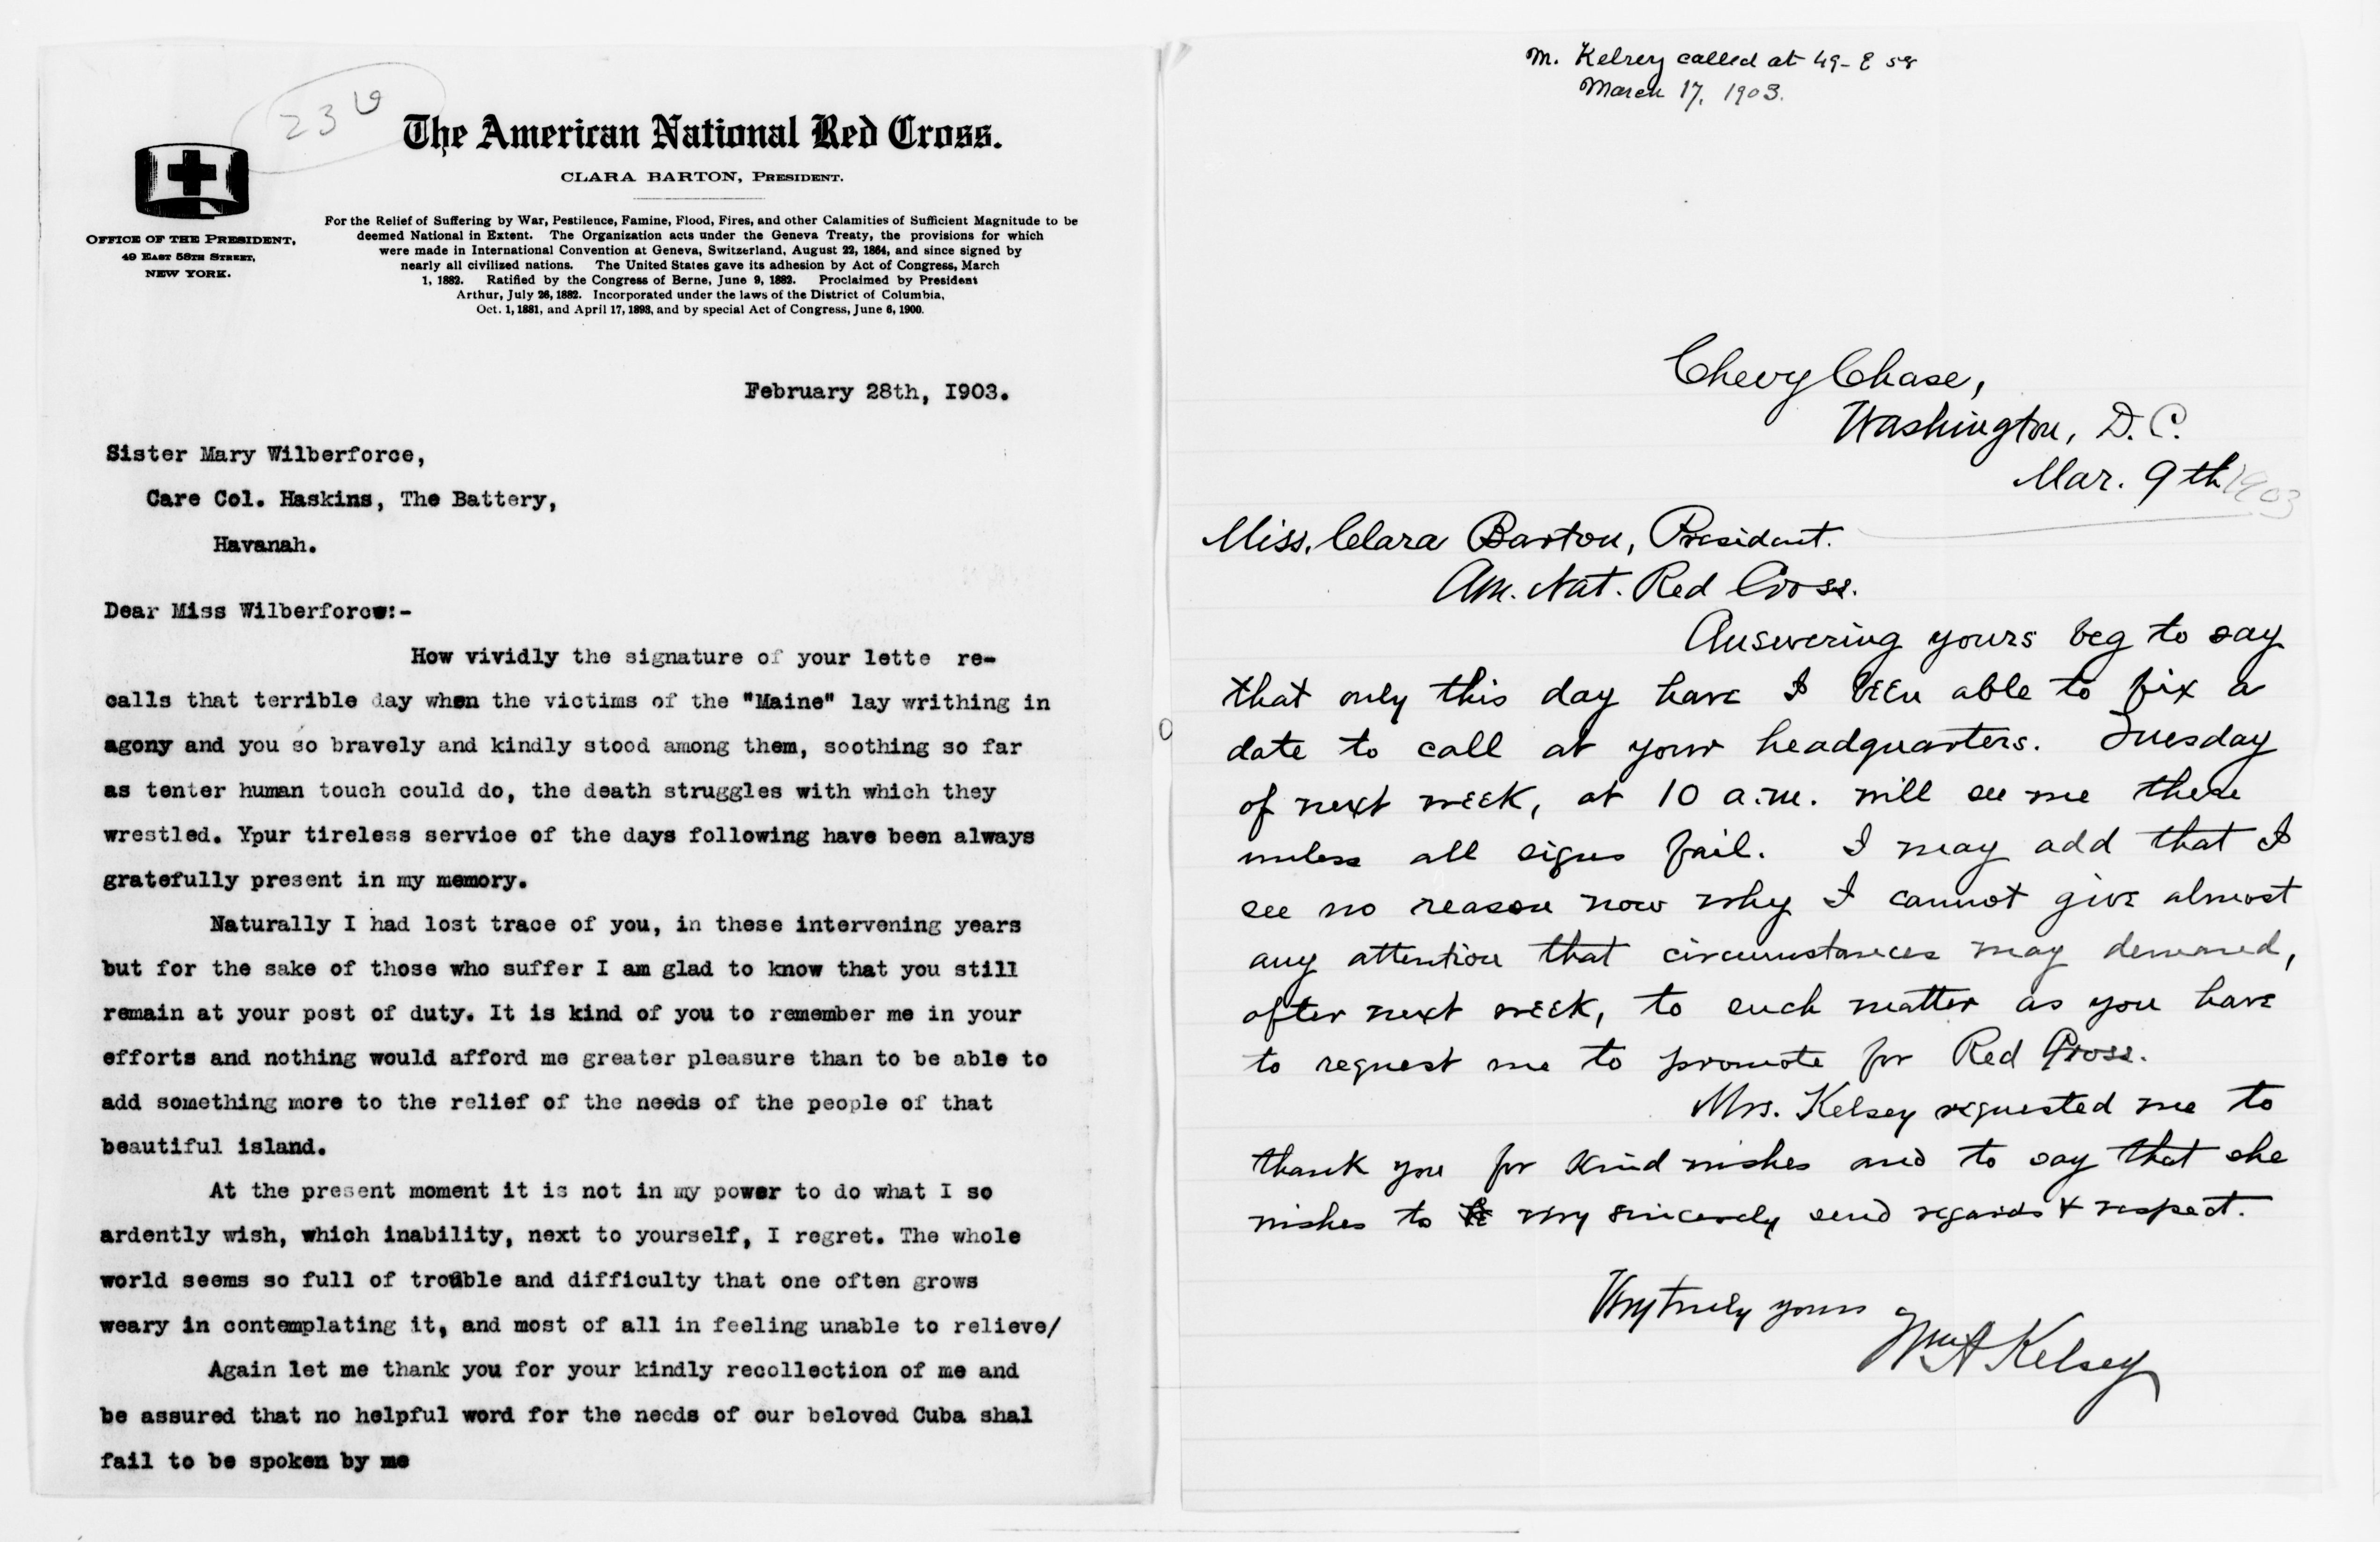 23
The American National Red Cross.
CLARA BARTON, PRESIDENT.
OFFICE OF THE PRESIDENT,
49 EAST 58TH STREET,
NEW YORK.
For the Relief of Suffering by War, Pestilence, Famine, Flood, Fires, and other Calamities of Sufficient Magnitude to be
deemed National in Extent. The Organization acts under the Geneva Treaty, the provisions for which
were made in International Convention at Geneva, Switzerland, August 22, 1864, and since signed by
nearly all civilized nations. The United States gave its adhesion by Act of Congress, March
1, 1882. Ratified by the Congress of Berne, June 9, 1882. Proclaimed by President
Arthur, July 26, 1882. Incorporated under the laws of the District of Columbia,
Oct. 1, 1881, and April 17, 1893, and by special Act of Congress, June 6, 1900.
February 28th, I903.
Sister Mary Wilberforce,
Care Col. Haskins, The Battery,
Havanah.
Dear Miss Wilberforce:-
How vividly the signature of your lette re-
calls that terrible day when the victims of the "Maine" lay writhing in
agony and you so bravely and kindly stood among them, soothing so far
as tenter human touch could do, the death struggles with which they
wrestled. Ypur tireless service of the days following have been always
gratefully present in my memory.
Naturally I had lost trace of you, in these intervening years
but for the sake of those who suffer I am glad to know that you still
remain at your post of duty. It is kind of you to remember me in your
efforts and nothing would afford me greater pleasure than to be able to
add something more to the relief of the needs of the people of that
beautiful island.
At the present moment it is not in my power to do what I so
ardently wish, which inability, next to yourself, I regret. The whole
world seems so full of trouble and difficulty that one often grows
weary in contemplating it, and most of all in feeling unable to relieve/
Again let me thank you for your kindly recollection of me and
be assured that no helpful word for the needs of our beloved Cuba shal
fail to be spoken by me
M. Kelsey called at 49- E 58
March 17, 1903.
Chevy Chase,
Washington, D.C.
Mar. 9th 1903
Miss. Clara Barton, President.
Am. Nat. Red Cross.
Answering yours beg to say
that only this day have I been able to fix a
date to call at your headquarters. Tuesday
of next week, at 10 a.m. will see me there
unless all signs fail. I may add that I
see no reason now why I cannot give almost
any attention that circumstances may demand,
after next week, to such matter as you have
to request me to promote for Red Cross.
Mrs. Kelsey requested me to
thank you for kind wishes and to say that she
wishes to very sincerely send regards & respect.
Very truly yours
Wm A Kelsey